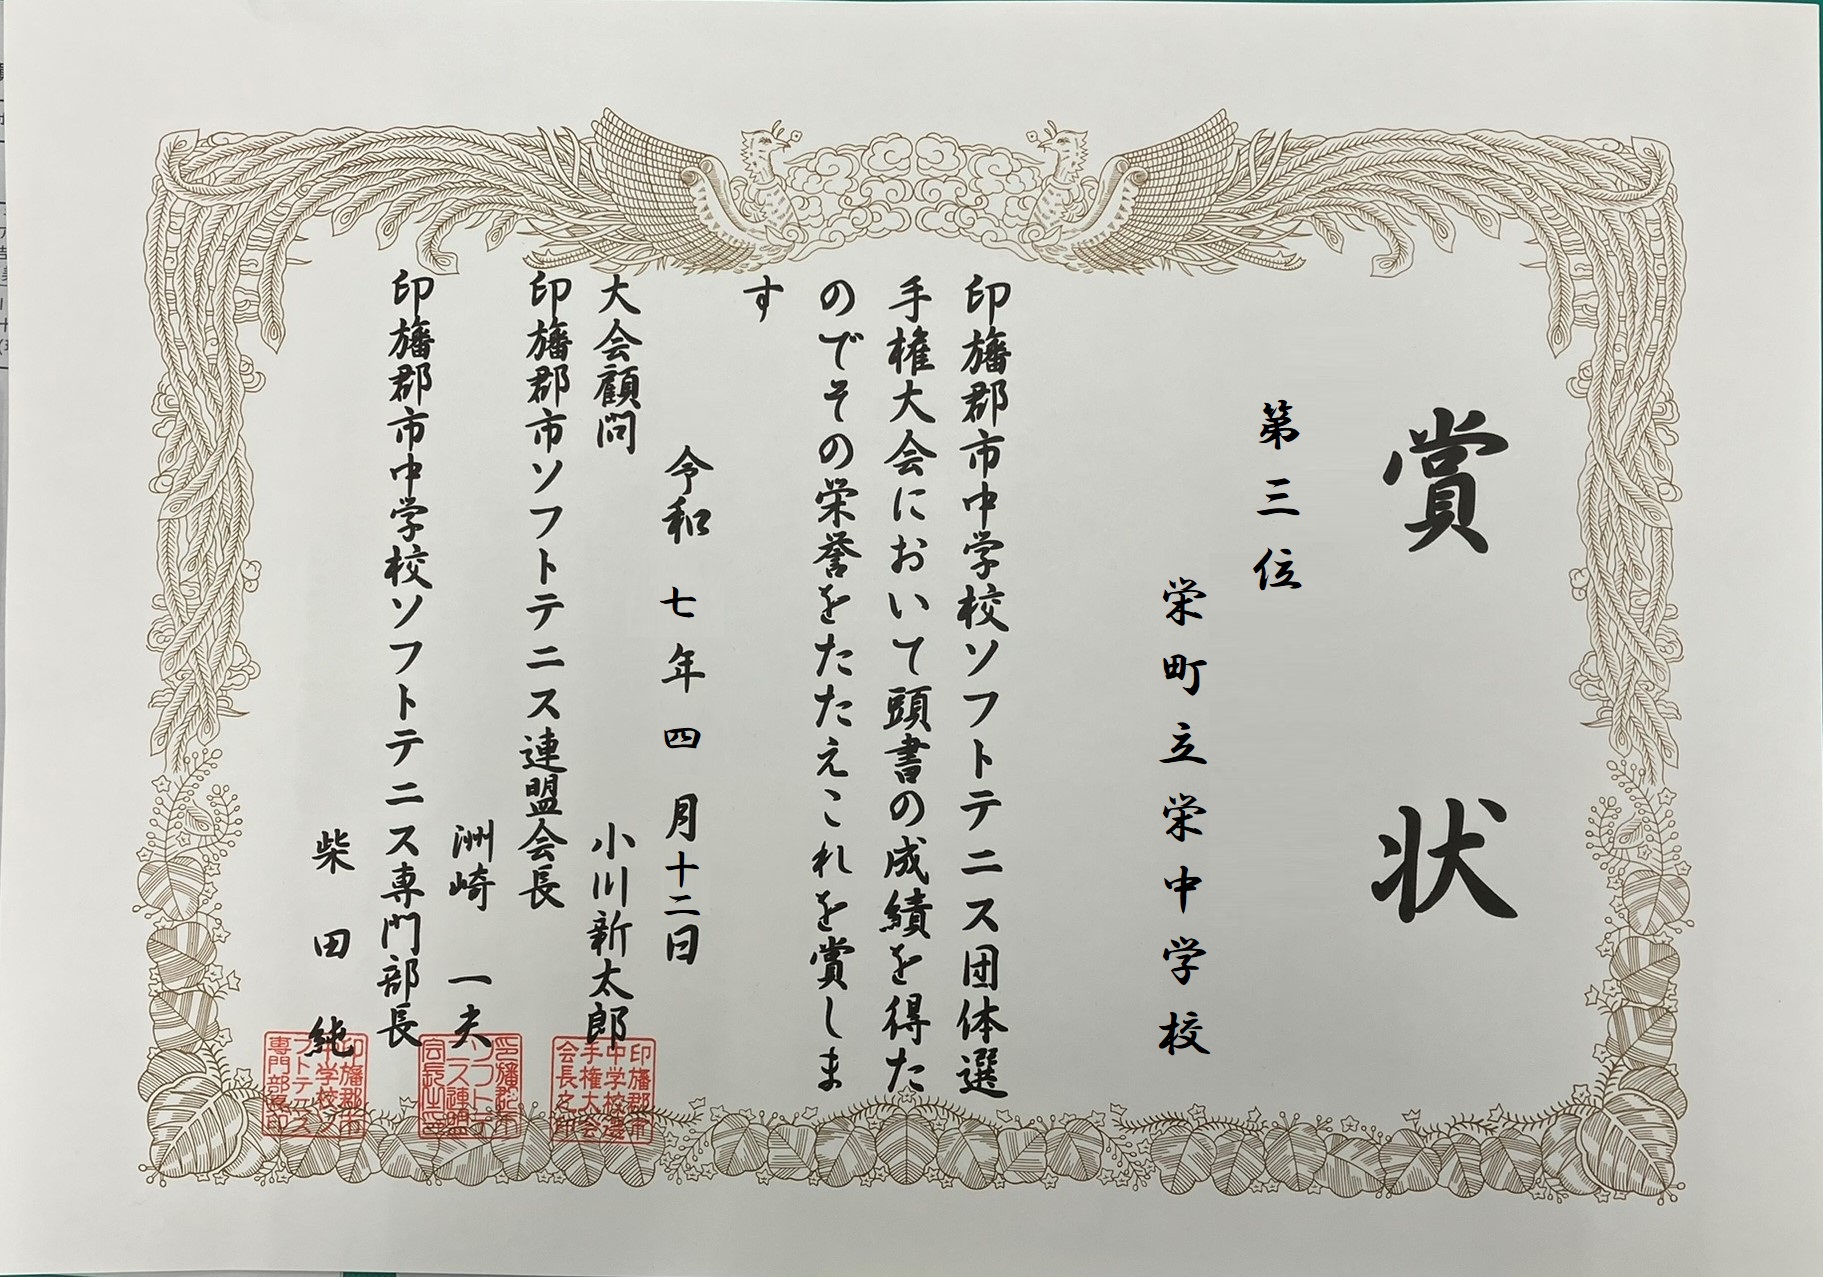 賞状
第三位
栄町立栄中学校
印旛郡市中学校ソフトテニス団体選
手権大会において頭書の成績を得た
のでその栄誉をたたえこれを賞しま
す
令和七年四月十二日
大会顧問
小川新太郎
印旛郡市ソフトテニス連盟会長
洲崎一夫
印旛郡市中学校ソフトテニス専門部長
柴田純
印旛郡市
中学校選
手権大会
会長之印
印旛郡市
ソフトテニ
ス連盟
会長之印
印旛郡市
中学校ソ
フトテニス
専門部長印